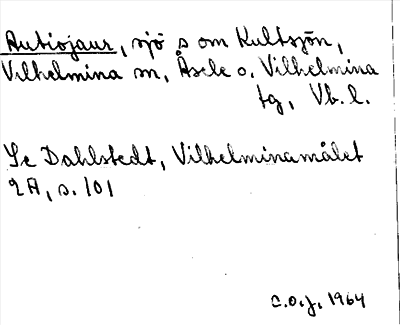 Autiojaur, sjö s om Kultsjön,
Vilhelmina sn, Åsele o. Vilhelmina
tg, Vb. l.
Se Dahlstedt, Vilhelminamålet
2A, s. 101
C.O.J. 1964